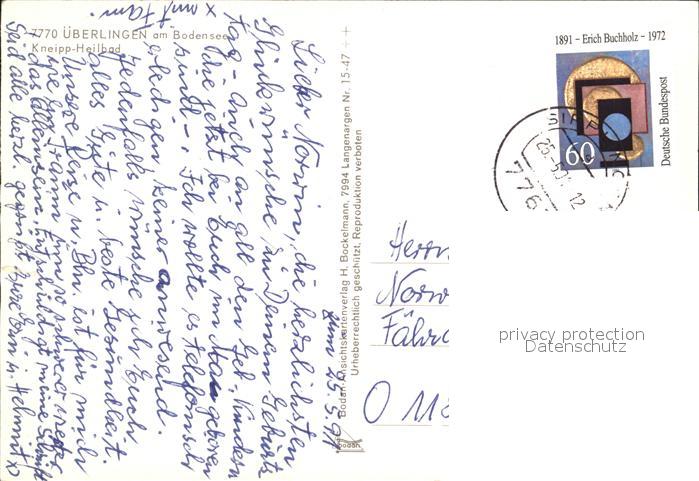 7770 ÜBERLINGEN am Bodensee
Kneipp-Heilbad
zum 25.5.91.
Lieber Norwin, die herzlichsten
Glückwünsche zu Deinem Geburts
tag - auch an all den Geb. Kindern
die jetzt bei Euch im Mai geboren
sind -. Ich wollte es telefonisch
erledigen keiner anwesend.
Jedenfalls wünsche ich Euch
alles Gute u. beste Gesundheit.
Unsere Reise n. Bln. ist für mich
das Alleinsein, Entschuldigt meine
Seid alle herzl. gegrüßt
x und Fam.
Bodan-Ansichtskartenverlag H. Bockelmann, 7994 Langenargen Nr. 15-47 ++
Urheberrechtlich geschützt, Reproduktion verboten
bodan
1891 – Erich Buchholz – 1972
60
Deutsche Bundespost
Herrn
Norw
Fähr
O 118
privacy protection
Datenschutz